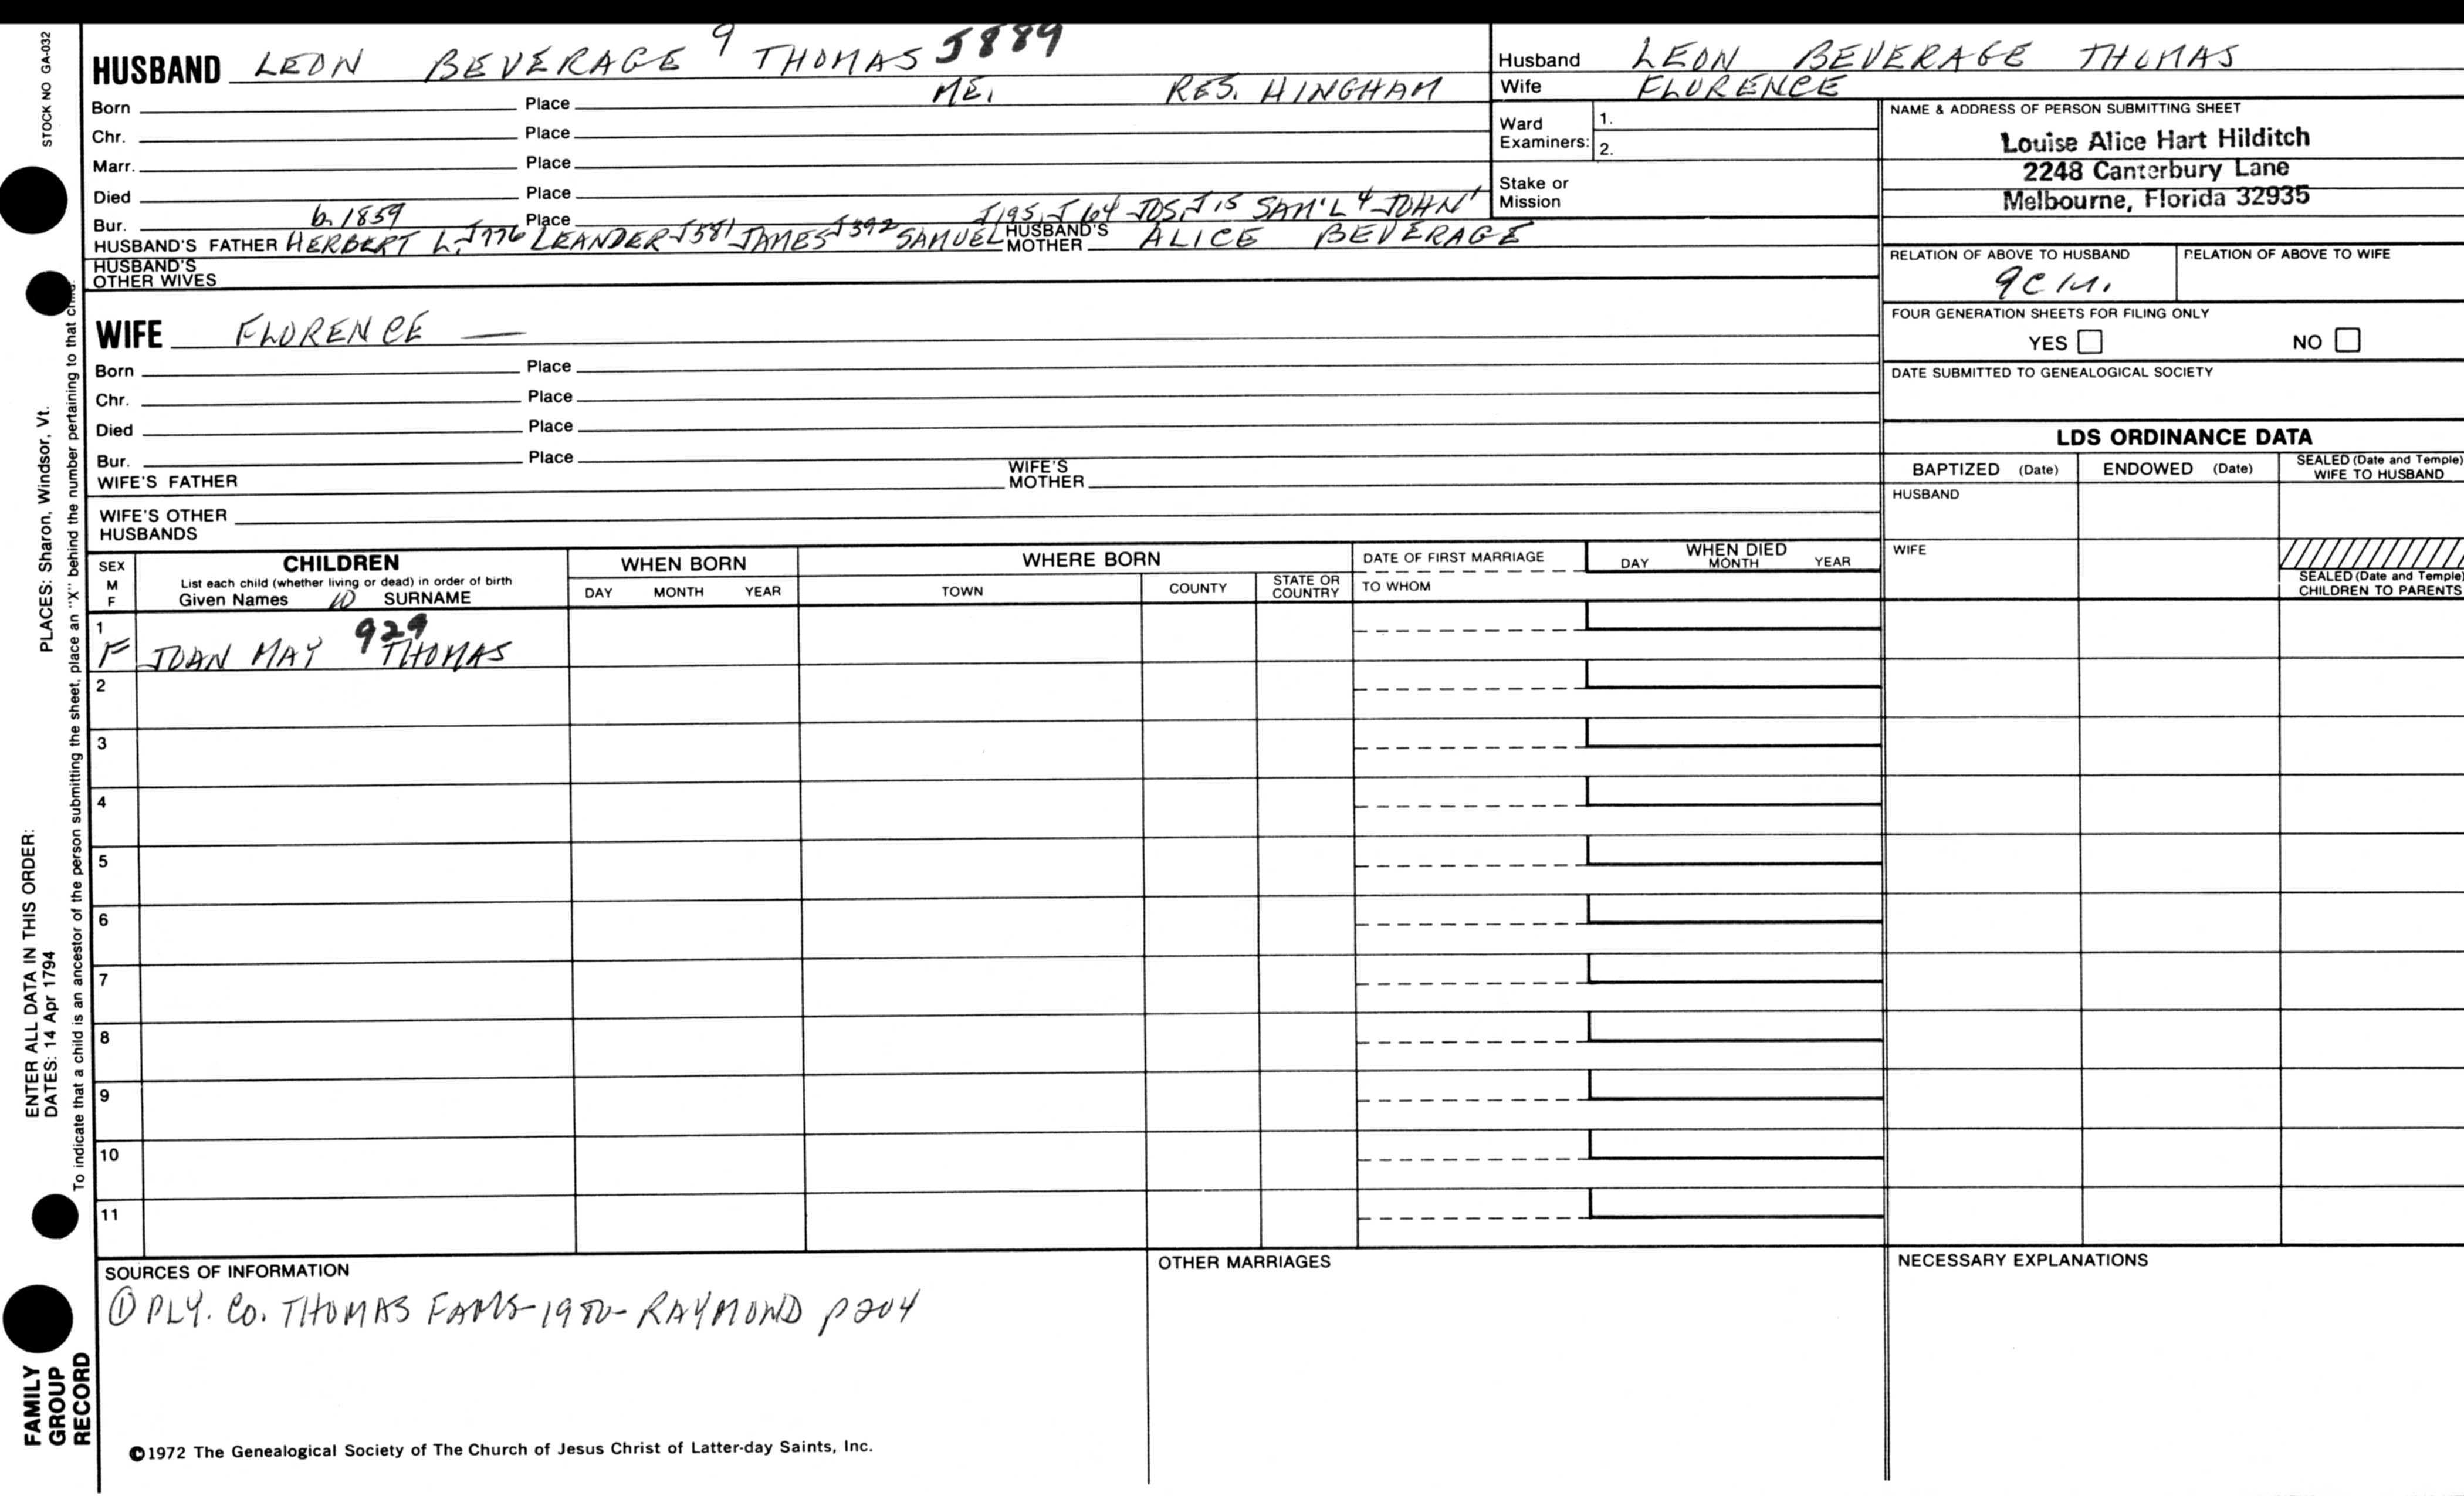 STOCK NO GA-032
HUSBAND LEON BEVERAGE 9 THOMAS J889
Born Place ME. RES. HINGHAM
Chr. Place
Marr. Place
Died Place
Bur. b. 1859 Place J195, J164 JOS, J15 SAM'L 4 JOHN 1
HUSBAND'S FATHER HERBERT L. J776 LEANDER J581 JAMES J392 SAMUEL HUSBAND'S MOTHER ALICE BEVERAGE
HUSBAND'S OTHER WIVES
WIFE FLORENCE —
Born Place
Chr. Place
Died Place
Bur. Place
WIFE'S FATHER WIFE'S MOTHER
WIFE'S OTHER HUSBANDS
Husband LEON BEVERAGE THOMAS
Wife FLORENCE
Ward Examiners: 1.
2.
Stake or Mission
NAME & ADDRESS OF PERSON SUBMITTING SHEET
Louise Alice Hart Hilditch
2248 Canterbury Lane
Melbourne, Florida 32935
RELATION OF ABOVE TO HUSBAND RELATION OF ABOVE TO WIFE
FOUR GENERATION SHEETS FOR FILING ONLY
YES NO
DATE SUBMITTED TO GENEALOGICAL SOCIETY
LDS ORDINANCE DATA
BAPTIZED (Date) ENDOWED (Date) SEALED (Date and Temple) WIFE TO HUSBAND
HUSBAND
WIFE
SEALED (Date and Temple) CHILDREN TO PARENTS
SEX M F
CHILDREN
List each child (whether living or dead) in order of birth
Given Names 10 SURNAME
WHEN BORN
DAY MONTH YEAR
WHERE BORN
TOWN COUNTY STATE OR COUNTRY
DATE OF FIRST MARRIAGE
TO WHOM
WHEN DIED
DAY MONTH YEAR
1 929
F JOAN MAY THOMAS
2
3
4
5
6
7
8
9
10
11
SOURCES OF INFORMATION
① PLY. CO. THOMAS FAMS-1980-RAYMOND p204
OTHER MARRIAGES
NECESSARY EXPLANATIONS
©1972 The Genealogical Society of The Church of Jesus Christ of Latter-day Saints, Inc.
PLACES: Sharon, Windsor, Vt.
ENTER ALL DATA IN THIS ORDER:
DATES: 14 Apr 1794
To indicate that a child is an ancestor of the person submitting the sheet, place an "X" behind the number pertaining to that child.
FAMILY
GROUP
RECORD